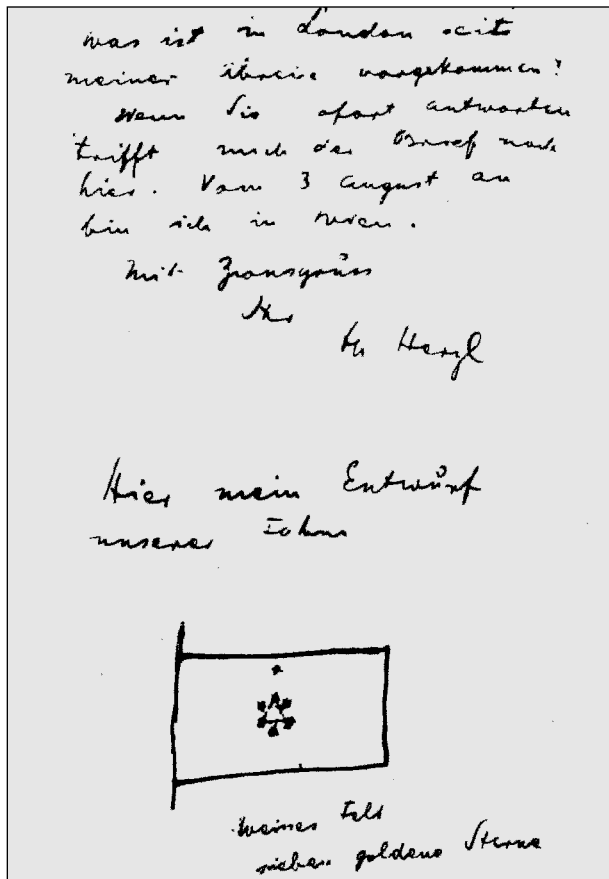 was ist in London seits
meiner Abreise vorgekommen?
Wenn Sie sofort antworten
trifft mich der Brief noch
hier. Vom 3 August an
bin ich in Wien.
Mit Zionsgruss
Ihr
Th Herzl
Hier mein Entwurf
unserer Fahne
weisses Feld
sieben goldene Sterne